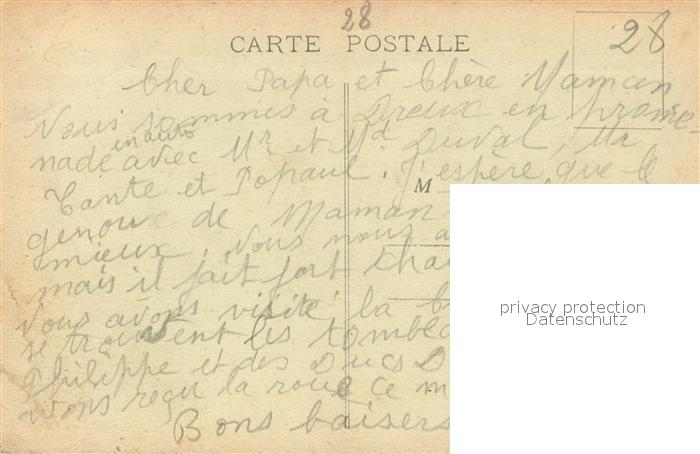 28
28
CARTE POSTALE
Cher Papa et Chère Maman
Nous sommes à Dreux en prome
nade en auto avec Mr et Md Duval, Ma
Tante et Popaul. J'espère que le
M
genoux de Maman
mieux. Nous nous a
mais il fait fort chau
Nous avons visité la
se trouvent les tombea
Philippe et des Ducs D
avons reçu la roue ce m
Bons baisers
privacy protection
Datenschutz